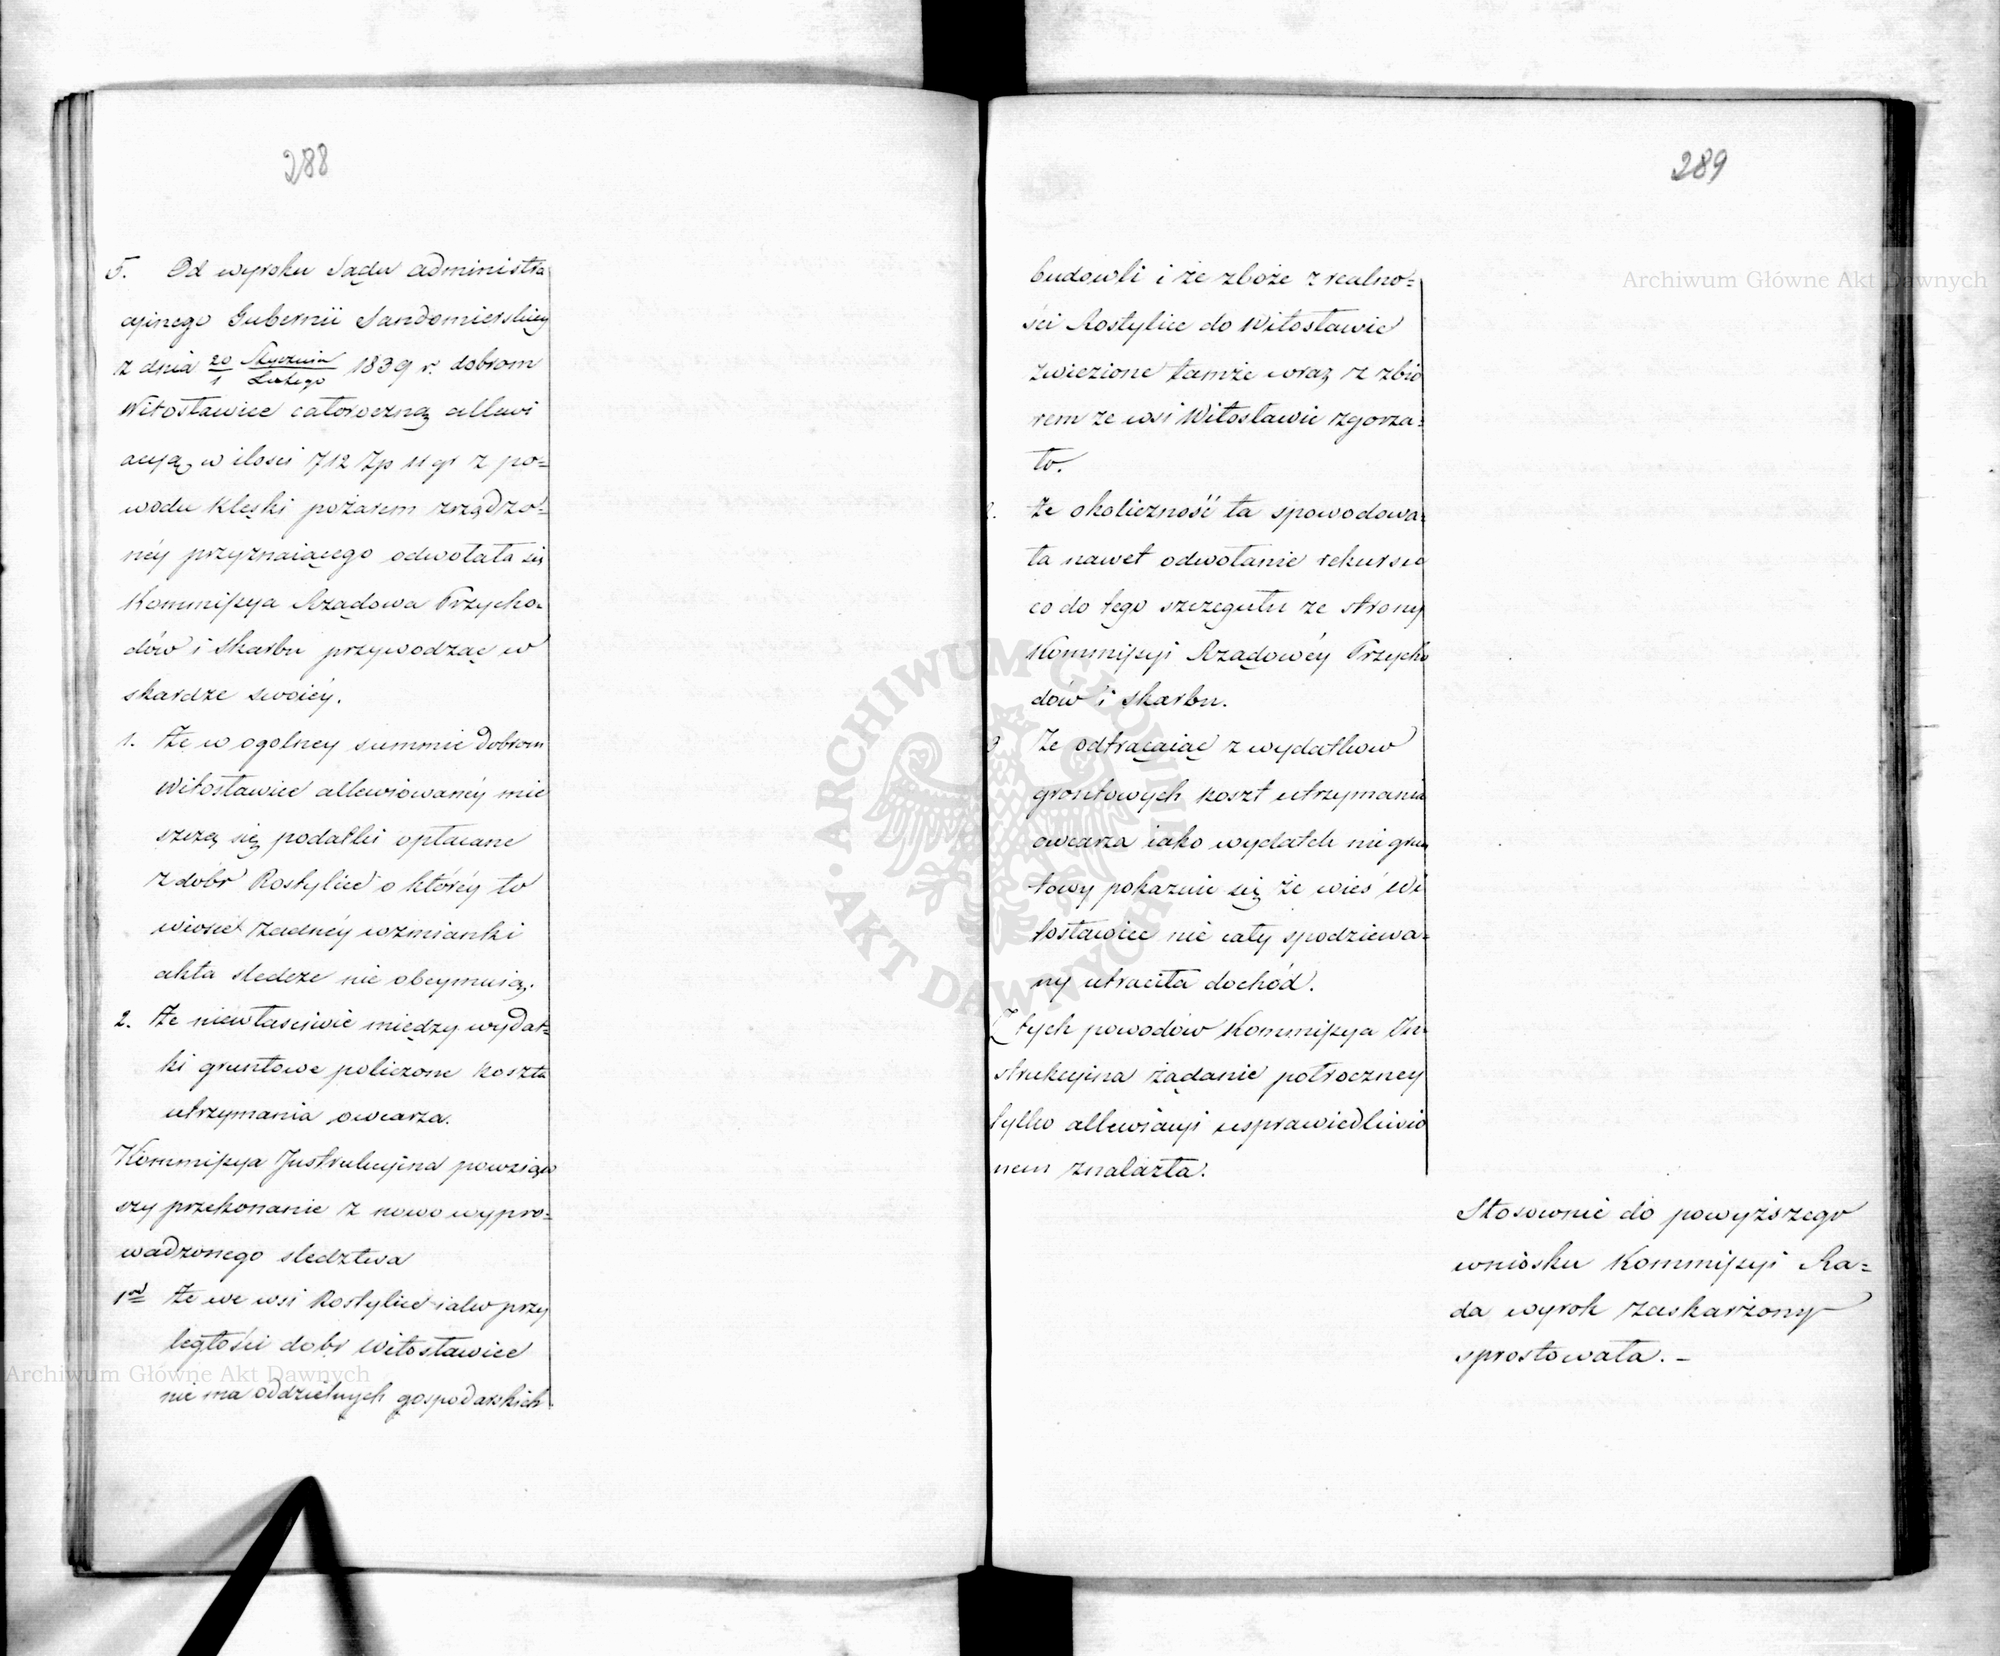 288
5. Od wyroku Sądu administra
cyinego Gubernii Sandomierskiey
z dnia 20/1 Stycznia/Lutego 1839 r. dobrom
Witosławice całoroczną allewi
acyą w ilości 712 Zp 11 gr z po=
wodu klęski pożarem zrządzo=
néy przyznaiącego odwołała się
Kommissya Rządowa Przycho=
dów i Skarbu przywodząc w
skardze swoiéy.
1. Że w ogolney summie dobrom
Witosławice allewiowanéy mie
szczą się podatki opłacane
z dobr Rostylice o któréy to
wiosce żadnéy wzmianki
akta sledcze nie obeymuią.
2. Że niewłasciwie między wydat=
ki gruntowe policzone koszta
utrzymania owcarza.
Kommissya Instrukcyina powziąw
szy przekonanie z nowo wypro=
wadzonego sledztwa
1od Że we wsi Rostylice iako przy
ległości dobr Witosławice
nie ma oddzielnych gospodarskich
289
budowli i że zboże z realno=
ści Rostylice do Witosławic
zwiezione tamże wraz z zbio
rem ze wsi Witosławic zgorza=
ło.
2. Że okoliczność ta spowodowa=
ła nawet odwołanie rekursu
co do tego szczegułu ze strony
Kommissyi Rządowéy Przycho
dów i Skarbu.
3 Że odtrącaiąc z wydatkow
gruntowych koszt utrzymania
owcarza iako wydatek nie grun
towy pokazuie się że wieś Wi
tosławice nie cały spodziewa=
ny utraciła dochód.
Z tych powodów Kommissya In
strukcyina żądanie półroczney
tylko allewiacyi usprawiedliwio
nem znalazła.
Stosownie do powyższego
wniosku Kommissyi Ra=
da wyrok zaskarżony
sprostowała. –
Archiwum Główne Akt Dawnych
Archiwum Główne Akt Dawnych
ARCHIWUM GŁÓWNE AKT DAWNYCH